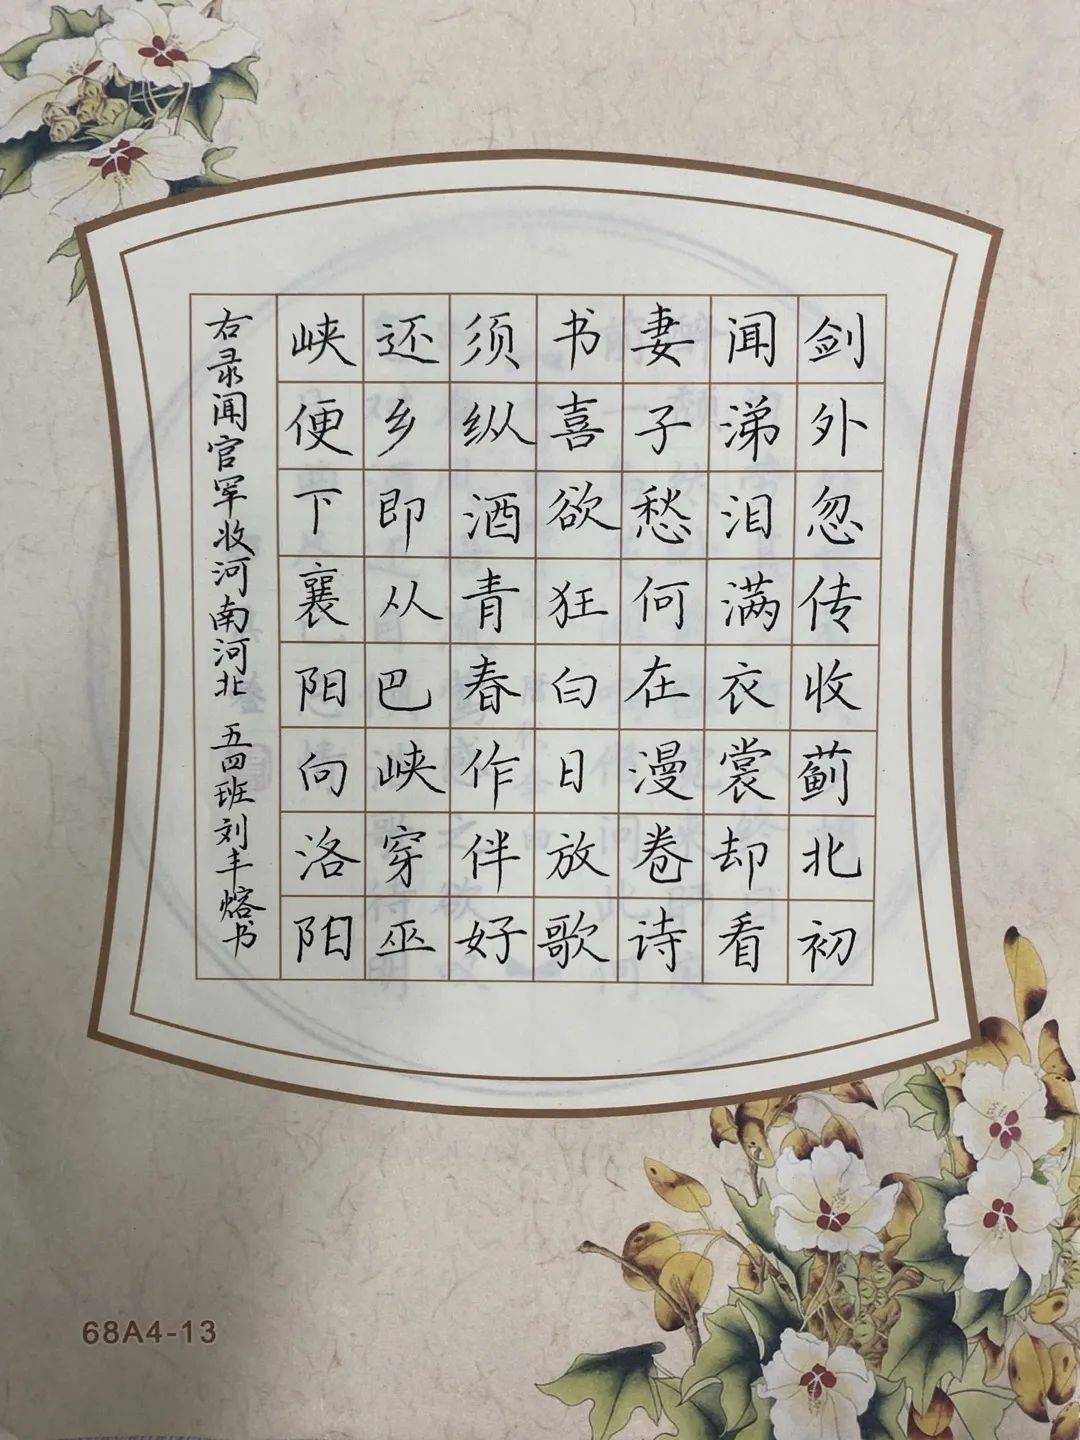 剑外忽传收蓟北初
闻涕泪满衣裳却看
妻子愁何在漫卷诗
书喜欲狂白日放歌
须纵酒青春作伴好
还乡即从巴峡穿巫
峡便下襄阳向洛阳
右录闻官军收河南河北 五四班刘丰熔书
68A4-13